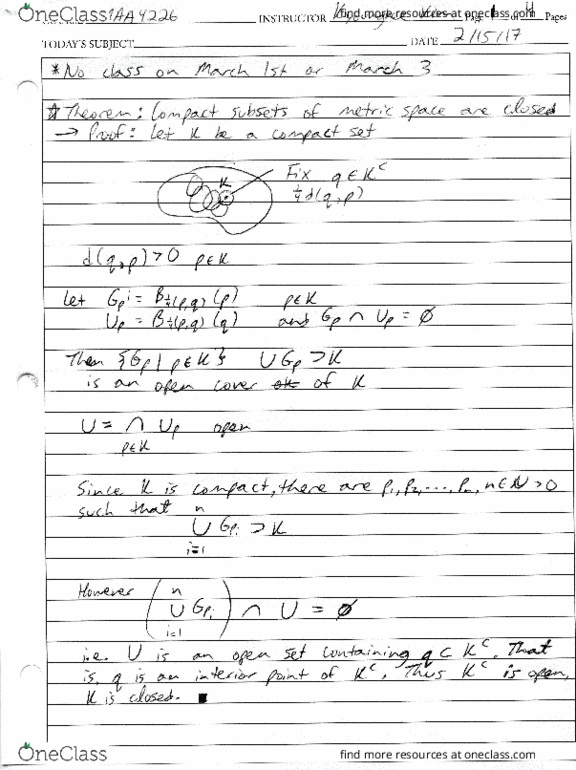 OneClass 1AA4226
INSTRUCTOR find more resources at oneclass.com Pages
TODAY'S SUBJECT DATE 2/15/17
*No class on March 1st or March 3
☆ Theorem: Compact subsets of metric space are closed
→ Proof: Let K be a compact set
K Fix q ∈ K^c
1/4 d(q,p)
d(q,p) > 0 p∈K
Let G_p := B_{1/4(p,q)}(p) p∈K
U_p = B_{1/4(p,q)}(q) and G_p ∩ U_p = ∅
Then {G_p | p∈K} ∪G_p ⊃ K
is an open cover of K
U = ∩ U_p open
p∈K
Since K is compact, there are p_1, p_2, ..., p_n, n∈N>0
such that n
∪ G_{p_i} ⊃ K
i=1
However ( n
∪ G_{p_i} ) ∩ U = ∅
i=1
i.e. U is an open set containing q ⊂ K^c. That
is, q is an interior point of K^c. Thus K^c is open,
K is closed. ■
OneClass find more resources at oneclass.com